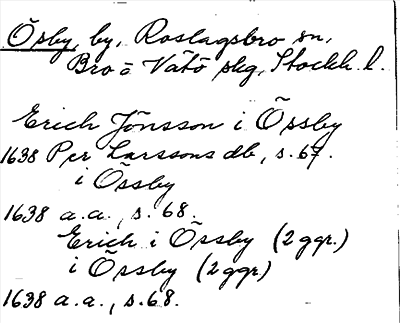 Ösby, by, Roslagsbro sn,
Bro o Vätö skg, Stockh. l.
Erich Jönsson i Össby
1638 Per Larssons db, s. 67.
i Össby
1638 a.a., s. 68.
Erich i Össby (2 ggr.)
i Össby (2 ggr)
1638 a.a., s. 68.